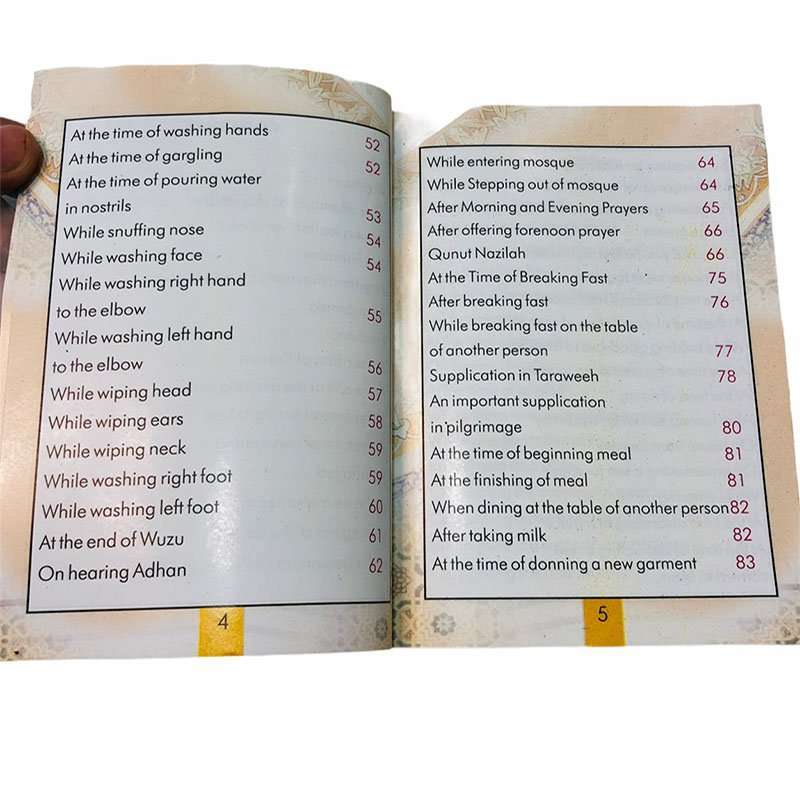 At the time of washing hands 52
At the time of gargling 52
At the time of pouring water
in nostrils 53
While snuffing nose 54
While washing face 54
While washing right hand
to the elbow 55
While washing left hand
to the elbow 56
While wiping head 57
While wiping ears 58
While wiping neck 59
While washing right foot 59
While washing left foot 60
At the end of Wuzu 61
On hearing Adhan 62
4
While entering mosque 64
While Stepping out of mosque 64
After Morning and Evening Prayers 65
After offering forenoon prayer 66
Qunut Nazilah 66
At the Time of Breaking Fast 75
After breaking fast 76
While breaking fast on the table
of another person 77
Supplication in Taraweeh 78
An important supplication
in pilgrimage 80
At the time of beginning meal 81
At the finishing of meal 81
When dining at the table of another person 82
After taking milk 82
At the time of donning a new garment 83
5